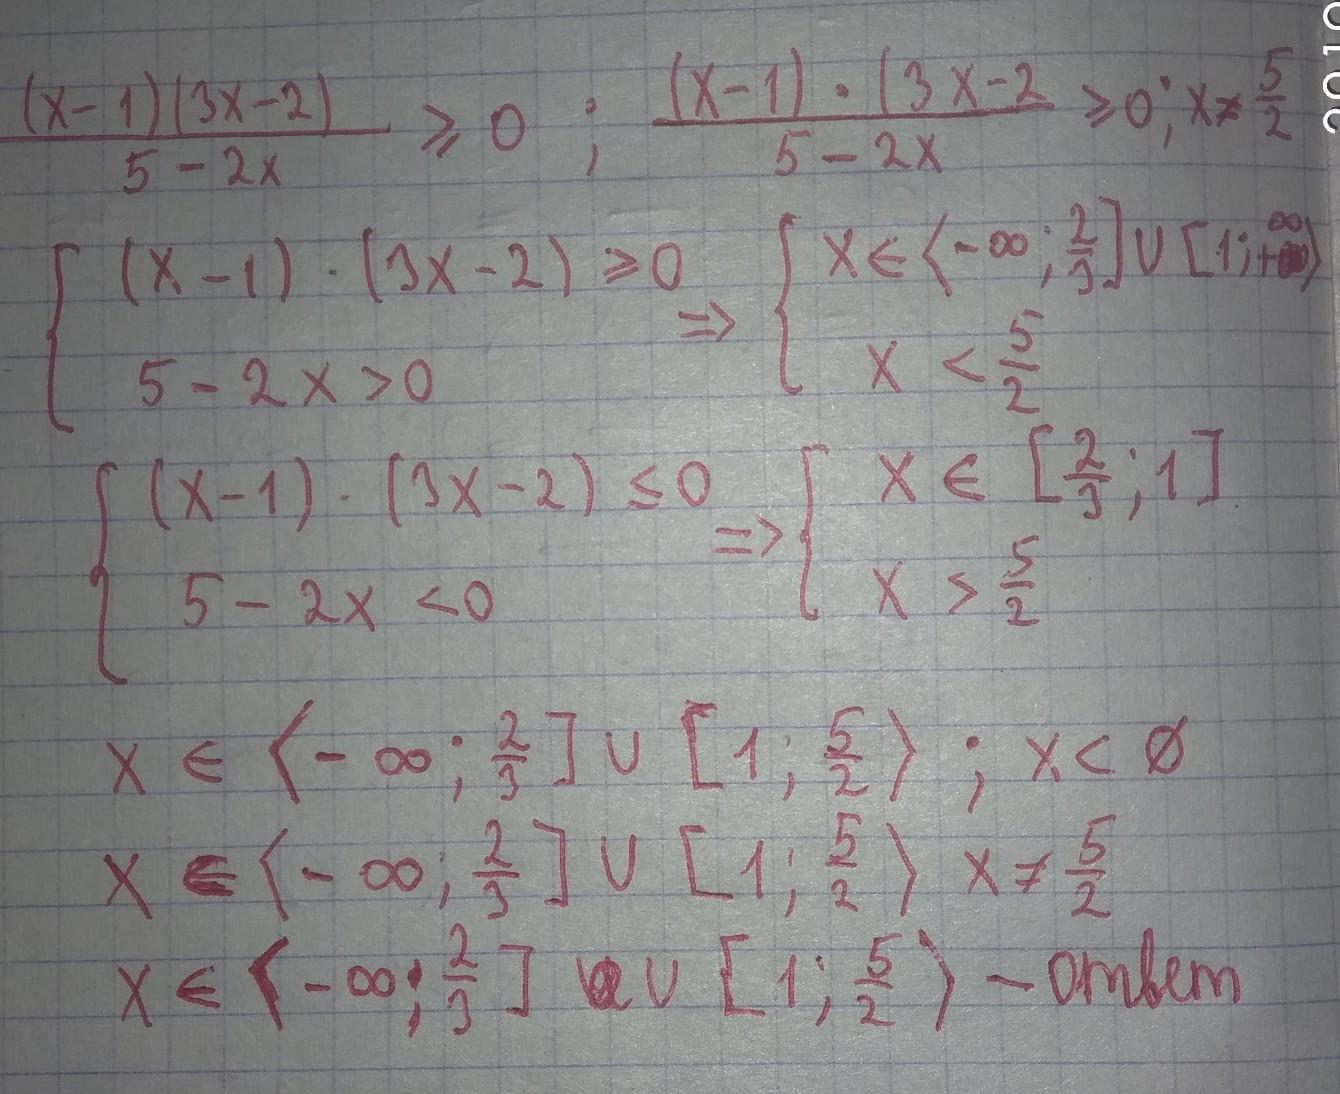 (x-1)(3x-2)/(5-2x) ⩾ 0 ; (x-1)·(3x-2/(5-2x) ⩾ 0; x≠5/2
{ (x-1)·(3x-2) ⩾ 0 ⇒ { x∈⟨-∞; 2/3] ∪ [1; +∞⟩
5-2x>0 x < 5/2
{ (x-1)·(3x-2) ≤ 0 ⇒ { x ∈ [2/3; 1]
5-2x <0 x > 5/2
x ∈ ⟨-∞; 2/3] ∪ [1; 5/2⟩ ; x < ∅
x ∈ ⟨-∞; 2/3] ∪ [1; 5/2⟩ x ≠ 5/2
x ∈ ⟨-∞; 2/3] ∪ [1; 5/2⟩ - ответ